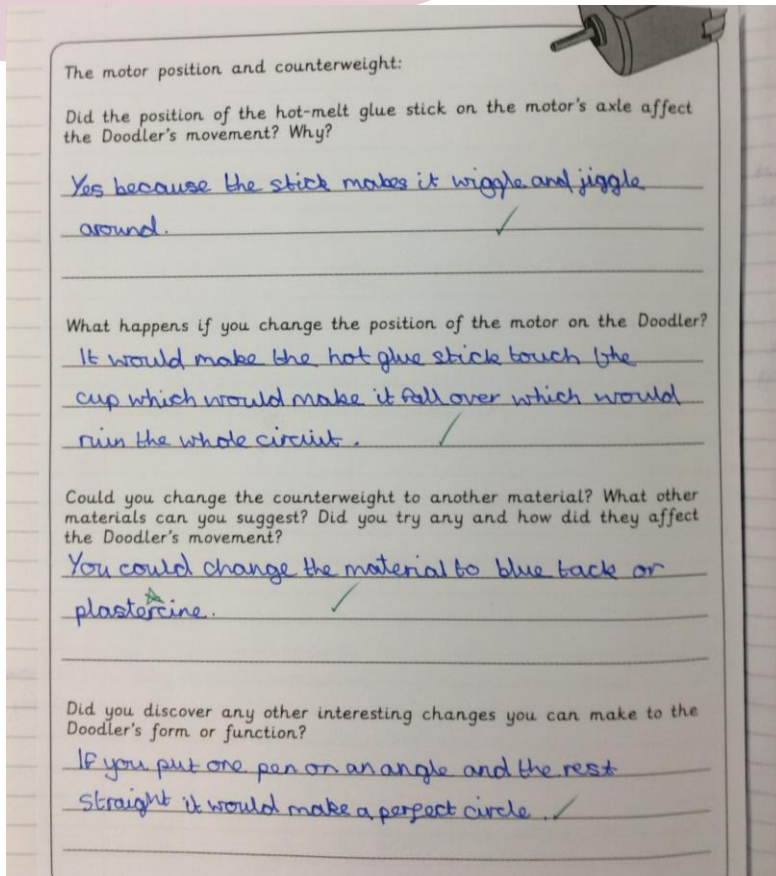 The motor position and counterweight:
Did the position of the hot-melt glue stick on the motor's axle affect
the Doodler's movement? Why?
Yes because the stick makes it wiggle and jiggle
around.
What happens if you change the position of the motor on the Doodler?
It would make the hot glue stick touch the
cup which would make it fall over which would
ruin the whole circiut.
Could you change the counterweight to another material? What other
materials can you suggest? Did you try any and how did they affect
the Doodler's movement?
You could change the material to blue tack or
plastercine.
Did you discover any other interesting changes you can make to the
Doodler's form or function?
If you put one pen on an angle and the rest
straight it would make a perfect circle.